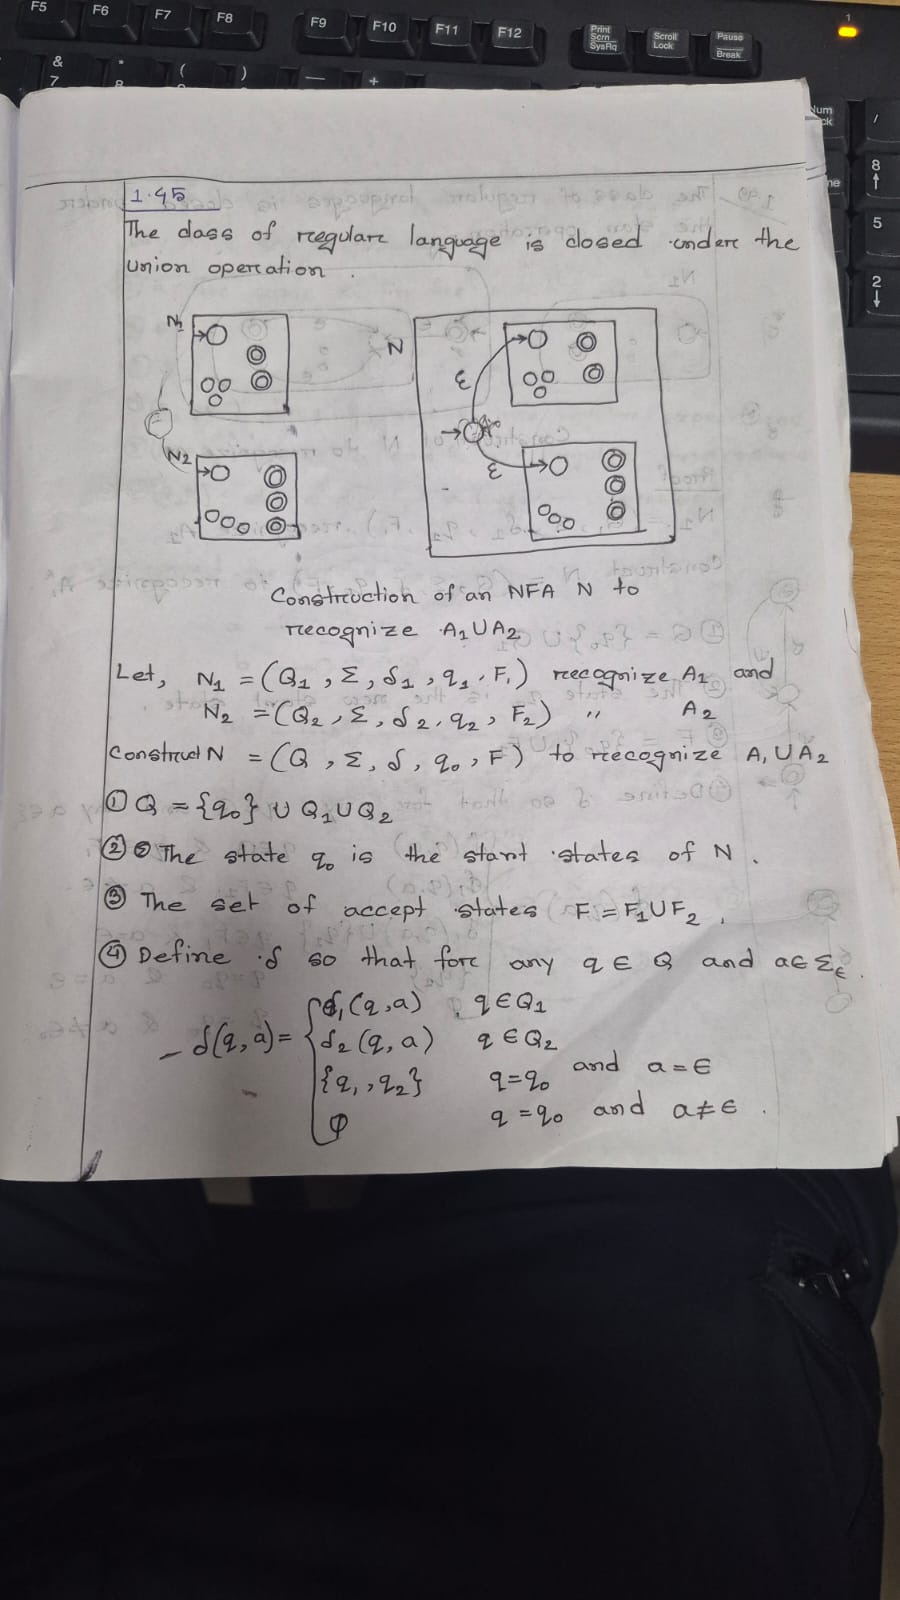 F5 F6 F7 F8 F9 F10 F11 F12 Print Scrn SysRq Scroll Lock Pause Break 1
& 7 * 8 ( ) — +
/
8
5
2
1.45
The class of regular language is closed under the
union operation.
N1
N
ε
N2
ε
Construction of an NFA N to
recognize A1 U A2
Let, N1 = (Q1, Σ, δ1, q1, F1) recognize A1 and
N2 = (Q2, Σ, δ2, q2, F2) " A2
Construct N = (Q, Σ, δ, q0, F) to recognize A1 U A2
① Q = {q0} U Q1 U Q2
② The state q0 is the start states of N.
③ The set of accept states F = F1 U F2,
④ Define δ so that for any q ∈ Q and a ∈ Σε.
δ(q,a) = { δ1(q,a) q ∈ Q1
δ2(q,a) q ∈ Q2
{q1, q2} q = q0 and a = ϵ
φ q = q0 and a ≠ ϵ.